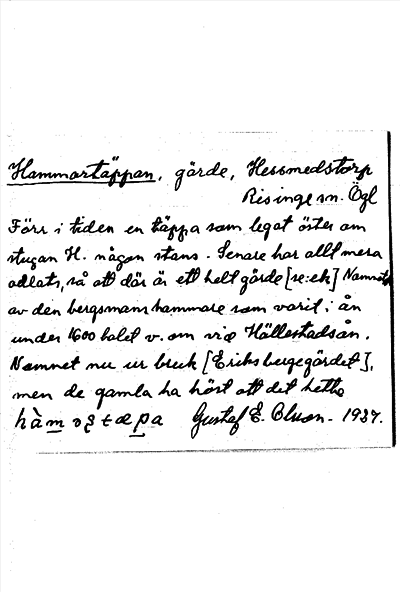 Hammartäppan, gärde, Hessmedstorp
Risinge sn. Ögl
Förr i tiden en täppa som legat öster om
stugan H. någon stans. Senare har allt mera
odlats, så att där är ett helt gärde [se: ek] Namnet
av den bergsmans hammare som varit i ån
under 1600 talet v. om vid Hällestadsån.
Namnet nu ur bruk [Eriksbergegärdet],
men de gamla ha hört att det hette
Gustaf E. Olsson - 1937.